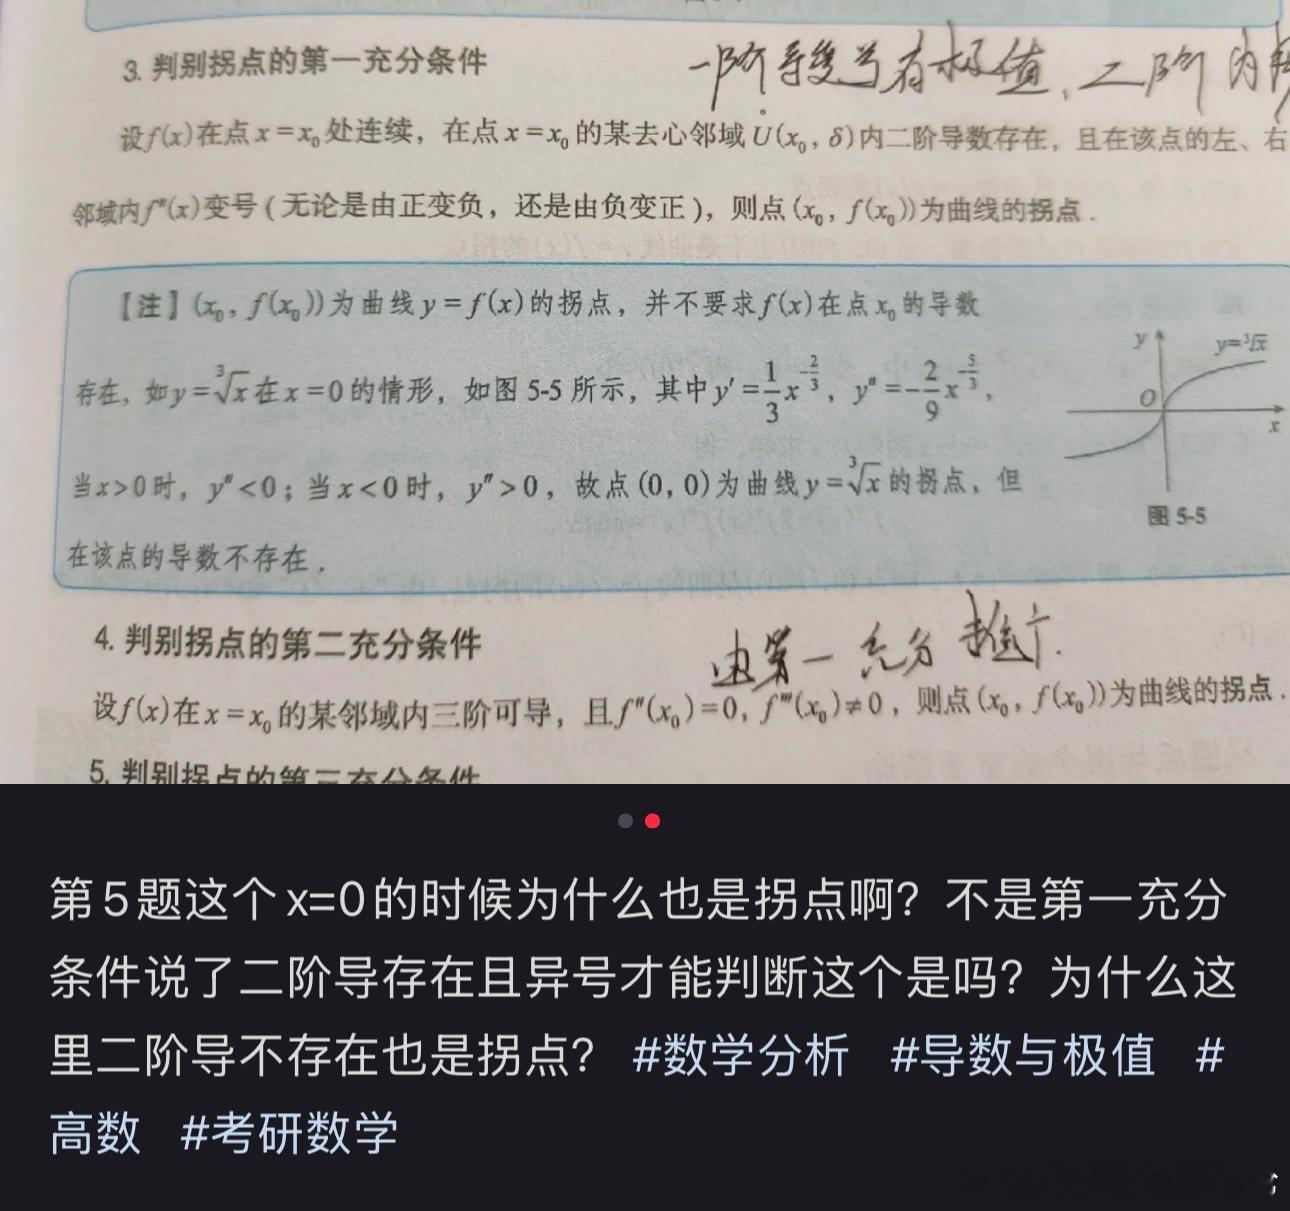 3. 判别拐点的第一充分条件
一阶导变号有极值、二阶
设f(x)在点x=x₀处连续，在点x=x₀的某去心邻域Ů(x₀, δ)内二阶导数存在，且在该点的左、右
邻域内f″(x)变号(无论是由正变负，还是由负变正)，则点(x₀, f(x₀))为曲线的拐点.
【注】(x₀, f(x₀))为曲线y=f(x)的拐点，并不要求f(x)在点x₀的导数
存在，如y=∛x在x=0的情形，如图5-5所示，其中y′=1/3 x^(-2/3)，y″=-2/9 x^(-5/3)，
当x>0时，y″<0；当x<0时，y″>0，故点(0, 0)为曲线y=∛x的拐点，但
在该点的导数不存在.
y
y=∛x
O
x
图5-5
4. 判别拐点的第二充分条件
由第一充分推广.
设f(x)在x=x₀的某邻域内三阶可导，且f″(x₀)=0, f‴(x₀)≠0，则点(x₀, f(x₀))为曲线的拐点.
5. 判别拐点的第三充分条件
第5题这个x=0的时候为什么也是拐点啊？不是第一充分
条件说了二阶导存在且异号才能判断这个是吗？为什么这
里二阶导不存在也是拐点？ #数学分析 #导数与极值 #
高数 #考研数学